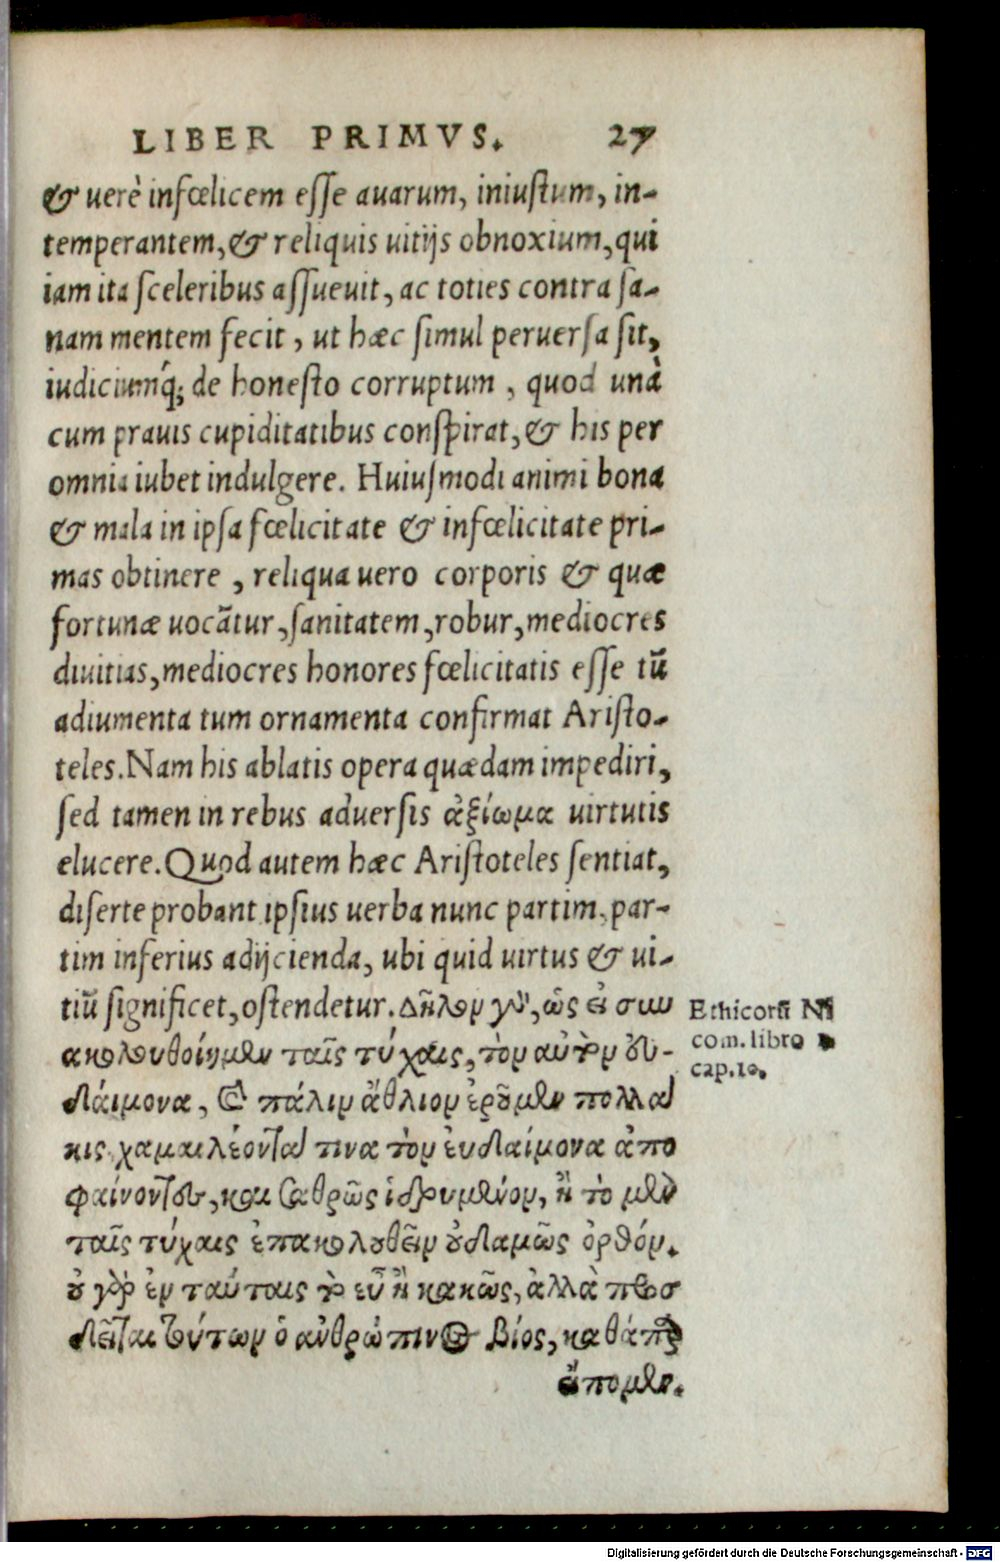 LIBER PRIMVS. 27
& uerè infœlicem eſſe auarum, iniuſtum, in-
temperantem, & reliquis uitijs obnoxium, qui
iam ita ſceleribus aſſueuit, ac toties contra ſa-
nam mentem fecit, ut hæc ſimul peruerſa ſit,
iudiciumq́; de honeſto corruptum, quod unà
cum prauis cupiditatibus conſpirat, & his per
omnia iubet indulgere. Huiuſmodi animi bona
& mala in ipſa fœlicitate & infœlicitate pri-
mas obtinere, reliqua uero corporis & quæ
fortunæ uocãtur, ſanitatem, robur, mediocres
diuitias, mediocres honores fœlicitatis eſſe tũ
adiumenta tum ornamenta confirmat Ariſto-
teles. Nam his ablatis opera quædam impediri,
ſed tamen in rebus aduerſis ἀξίωμα uirtutis
elucere. Quod autem hæc Ariſtoteles ſentiat,
diſerte probant ipſius uerba nunc partim, par-
tim inferius adijcienda, ubi quid uirtus & ui-
tiũ ſignificet, oſtendetur. Δῆλον γὸ, ὡς εἰ συν
ακολουθοίημεν ταῖς τύχαις, τὸν αὐτὸν εὐ-
δάιμονα, καὶ πάλιν ἄθλιον ἐροῦμεν πολλά
κις χαμαιλέοντά τινα τὸν ἐυδαίμονα ἀπο
φαίνοντες, και σαθρῶς ἱδρυμένον, ἢ τὸ μὲν
ταῖς τύχαις ἐπακολουθεῖν οὐδαμῶς ὀρθόν.
οὐ γὰρ ἐν ταύταις τὸ εὖ ἢ κακῶς, ἀλλὰ προσ
δεῖται τούτων ὁ ἀνθρώπινος βίος, καθάπερ
ἔιπομεν.
Ethicorũ Ni
com. libro
cap. 10.